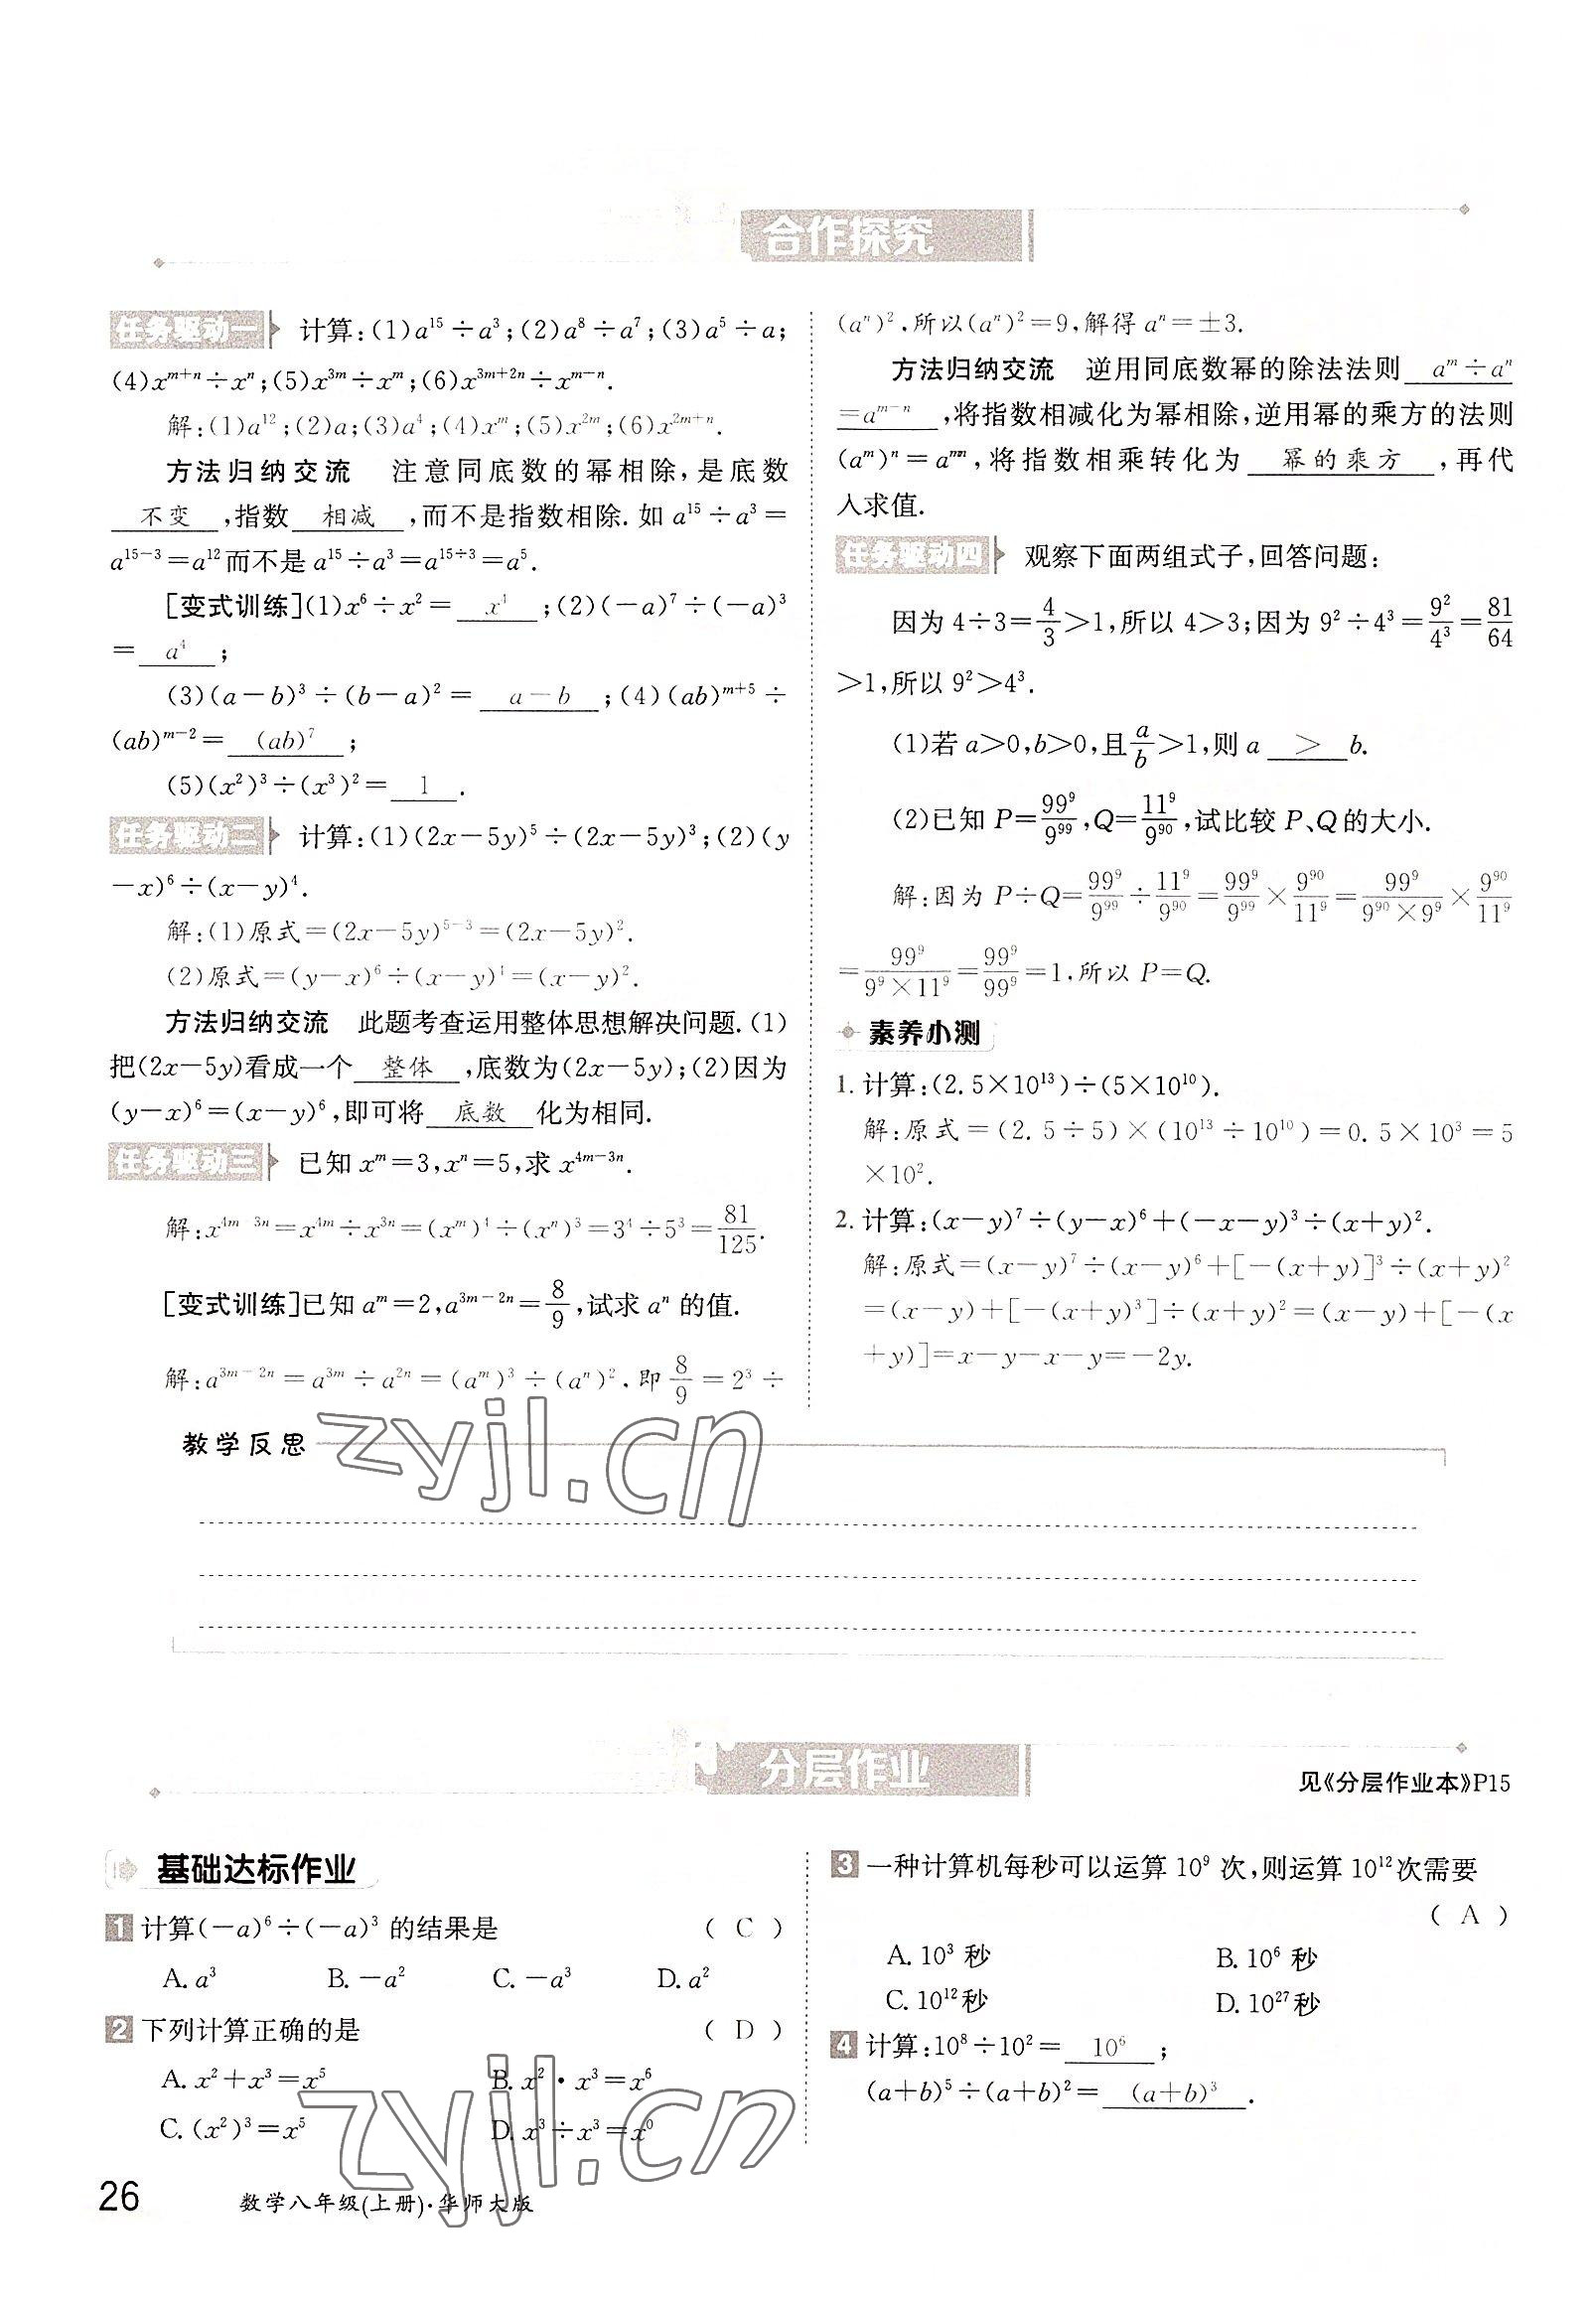 合作探究
任务驱动一 计算:(1)a¹⁵÷a³;(2)a⁸÷a⁷;(3)a⁵÷a;
(4)xᵐ⁺ⁿ÷xⁿ;(5)x³ᵐ÷xᵐ;(6)x³ᵐ⁺²ⁿ÷xᵐ⁻ⁿ.
解:(1)a¹²;(2)a;(3)a⁴;(4)xᵐ;(5)x²ᵐ;(6)x²ᵐ⁺ⁿ.
方法归纳交流 注意同底数的幂相除,是底数
不变,指数 相减,而不是指数相除.如 a¹⁵÷a³=
a¹⁵⁻³=a¹²而不是 a¹⁵÷a³=a¹⁵÷³=a⁵.
[变式训练](1)x⁶÷x²= x⁴ ;(2)(-a)⁷÷(-a)³
= a⁴ ;
(3)(a-b)³÷(b-a)²= a-b ;(4)(ab)ᵐ⁺⁵÷
(ab)ᵐ⁻²= (ab)⁷ ;
(5)(x²)³÷(x³)²= 1 .
任务驱动二 计算:(1)(2x-5y)⁵÷(2x-5y)³;(2)(y
-x)⁶÷(x-y)⁴.
解:(1)原式=(2x-5y)⁵⁻³=(2x-5y)².
(2)原式=(y-x)⁶÷(x-y)⁴=(x-y)².
方法归纳交流 此题考查运用整体思想解决问题.(1)
把(2x-5y)看成一个 整体 ,底数为(2x-5y);(2)因为
(y-x)⁶=(x-y)⁶,即可将 底数 化为相同.
任务驱动三 已知 xᵐ=3,xⁿ=5,求 x⁴ᵐ⁻³ⁿ.
解:x⁴ᵐ⁻³ⁿ=x⁴ᵐ÷x³ⁿ=(xᵐ)⁴÷(xⁿ)³=3⁴÷5³=81/125.
[变式训练]已知 aᵐ=2,a³ᵐ⁻²ⁿ=8/9,试求 aⁿ 的值.
解:a³ᵐ⁻²ⁿ=a³ᵐ÷a²ⁿ=(aᵐ)³÷(aⁿ)²,即 8/9=2³÷
(aⁿ)²,所以(aⁿ)²=9,解得 aⁿ=±3.
方法归纳交流 逆用同底数幂的除法法则 aᵐ÷aⁿ
=aᵐ⁻ⁿ ,将指数相减化为幂相除,逆用幂的乘方的法则
(aᵐ)ⁿ=aᵐⁿ,将指数相乘转化为 幂的乘方 ,再代
入求值.
任务驱动四 观察下面两组式子,回答问题:
因为 4÷3=4/3>1,所以 4>3;因为 9²÷4³=9²/4³=81/64
>1,所以 9²>4³.
(1)若 a>0,b>0,且a/b>1,则 a > b.
(2)已知 P=99⁹/9⁹⁹,Q=11⁹/9⁹⁰,试比较 P、Q 的大小.
解:因为 P÷Q=99⁹/9⁹⁹÷11⁹/9⁹⁰=99⁹/9⁹⁹×9⁹⁰/11⁹=99⁹/(9⁹⁰×9⁹)×9⁹⁰/11⁹
=99⁹/(9⁹×11⁹)=99⁹/99⁹=1,所以 P=Q.
素养小测
1. 计算:(2.5×10¹³)÷(5×10¹⁰).
解:原式=(2.5÷5)×(10¹³÷10¹⁰)=0.5×10³=5
×10².
2. 计算:(x-y)⁷÷(y-x)⁶+(-x-y)³÷(x+y)².
解:原式=(x-y)⁷÷(x-y)⁶+[-(x+y)]³÷(x+y)²
=(x-y)+[-(x+y)³]÷(x+y)²=(x-y)+[-(x
+y)]=x-y-x-y=-2y.
教学反思
zyjl.cn
分层作业
见《分层作业本》P15
基础达标作业
1 计算(-a)⁶÷(-a)³ 的结果是 ( C )
A. a³ B. -a² C. -a³ D. a²
2 下列计算正确的是 ( D )
A. x²+x³=x⁵ B. x²·x³=x⁶
C. (x²)³=x⁵ D. x³÷x³=x⁰
3 一种计算机每秒可以运算 10⁹ 次,则运算 10¹²次需要
( A )
A. 10³ 秒 B. 10⁶ 秒
C. 10¹²秒 D. 10²⁷秒
4 计算:10⁸÷10²= 10⁶ ;
(a+b)⁵÷(a+b)²= (a+b)³ .
zyjl.cn
26 数学八年级(上册)·华师大版